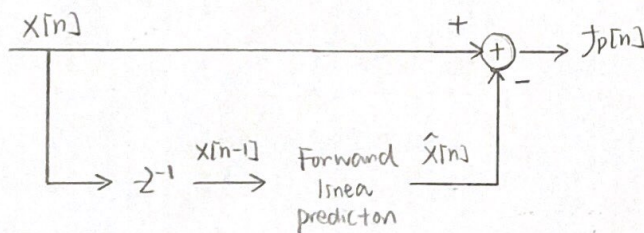 X[n]
+
+
fp[n]
−
z⁻¹
X[n-1]
Forward
linea
predicton
X̂[n]